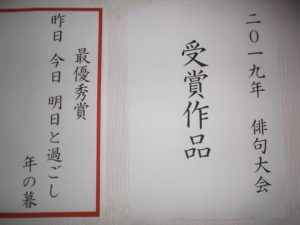 二〇一九年 俳句大会
受賞作品
最優秀賞
昨日 今日 明日と過ごし
年の暮